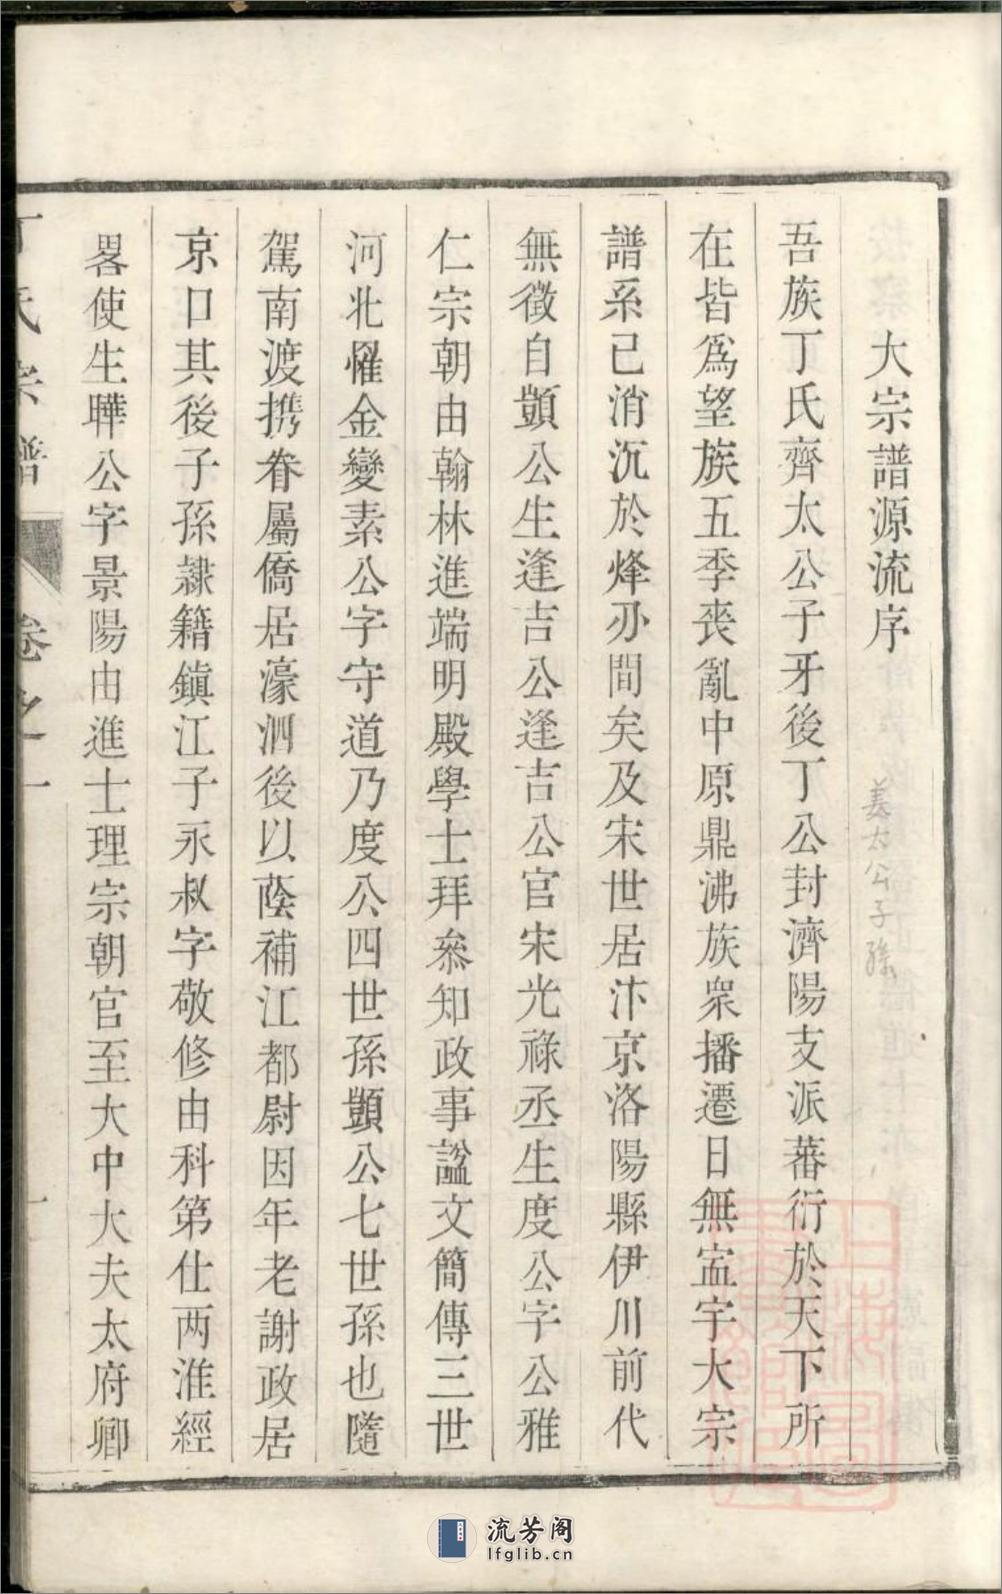 大宗譜源流序
吾族丁氏齊太公子牙後丁公封濟陽支派蕃衍於天下所
在皆爲望族五季喪亂中原鼎沸族衆播遷日無寍宇大宗
譜系已消沉於烽刅間矣及宋世居汴京洛陽縣伊川前代
無徵自顗公生逢吉公逢吉公官宋光祿丞生度公字公雅
仁宗朝由翰林進端明殿學士拜叅知政事諡文簡傳三世
河北罹金變素公字守道乃度公四世孫顗公七世孫也隨
駕南渡携眷屬僑居濠泗後以蔭補江都尉因年老謝政居
京口其後子孫隷籍鎭江子永叔字敬修由科第仕两淮經
畧使生曄公字景陽由進士理宗朝官至大中大夫太府卿
丁氏宗譜 卷之一 一
姜太公子孫
流芳阁
lfglib.cn